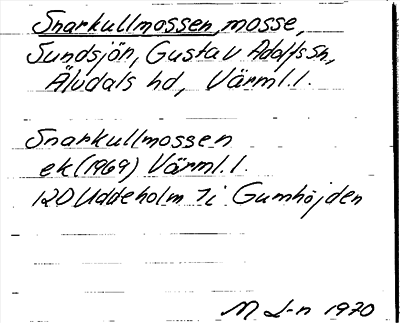 Snarkullmossen, mosse,
Sundsjön, Gustav Adolfs sn,
Älvdals hd, Värml. l.
Snarkullmossen
ek (1969) Värml. l.
12D Uddeholm 7i Gumhöjden
M L-n 1970